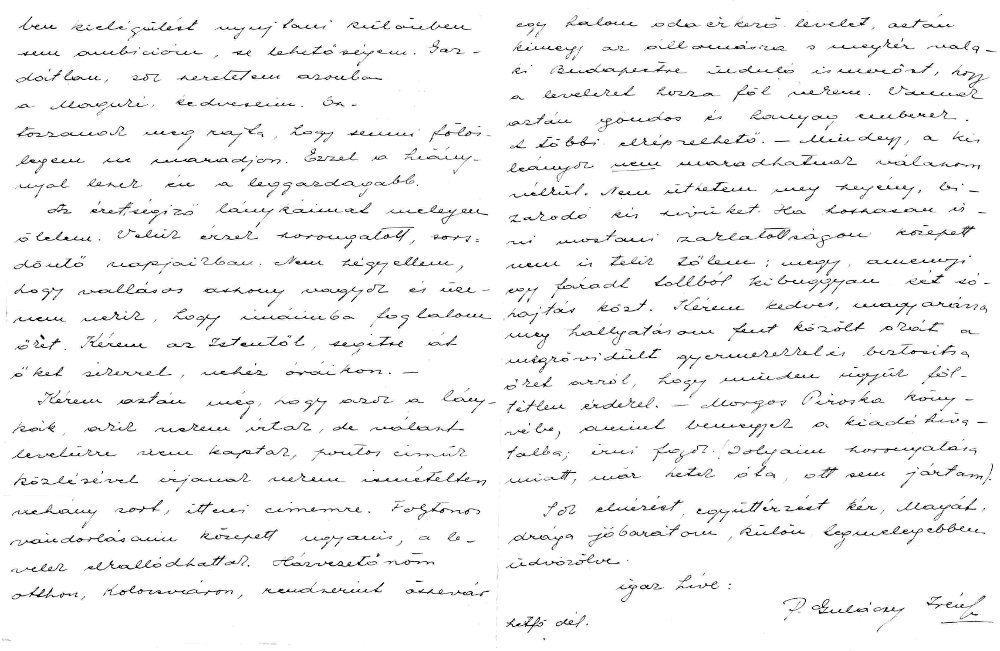 ben kielégülést nyujtani különben
sem ambicióm, se lehetőségem. Gaz-
dátlan, sok szeretetem azonban
a Maguké, kedveseim. Osz-
tozzanak meg rajta, hogy semmi fölös-
legem ne maradjon. Ezzel a hiány-
nyal leszek én a leggazdagabb.
Az érettségiző lánykáimat melegen
ölelem. Velük érzek szorongatott, sors-
döntő napjaikban. Nem szégyellem,
hogy vallásos asszony vagyok és üze-
nem nekik, hogy imáimba foglalom
őket. Kérem az Istentől, segítse át
őket sikerrel, nehéz óráikon. —
Kérem aztán még, hogy azok a lány-
kák, akik nekem írtak, de választ
levelükre nem kaptak, pontos címük
közlésével írjanak nekem ismételten
néhány sort, itteni címemre. Folytonos
vándorlásaim közepett ugyanis, a le-
velek elkallódhattak. Házvezetőnőm
otthon, Kolozsváron, rendszerint összevár
egy halom odaérkező levelet, aztán
kimegy az állomásra s megkér vala-
ki Budapestre induló ismerőst, hogy
a leveleket hozza föl nekem. Vannak
aztán gondos és hanyag emberek.
A többi elképzelhető. — Mindegy, a kis
leányok nem maradhatnak válaszom
nélkül. Nem üthetem meg szegény, bi-
zakodó kis szivüket. Ha hosszasan ír-
ni mostani zaklatottságom közepett
nem is telik tőlem; megy, amennyi
egy fáradt tollból kibuggyan két só-
hajtás közt. Kérem kedves, magyarázza
meg hallgatásom fent közölt okát a
megrövidült gyermekekkel és biztosítsa
őket arról, hogy minden ügyük föl-
tétlen érdekel. — Morgos Piroska köny-
vébe, amint bemegyek a kiadóhiva-
talba, írni fogok. (Dolgaim szorongatása
miatt, már hetek óta, ott sem jártam).
Sok elnézést, együttérzést kér, Magát,
drága jóbarátom, külön legmelegebben
üdvözölve.
igaz híve:
P. Gulácsy Irén
hétfő dél.